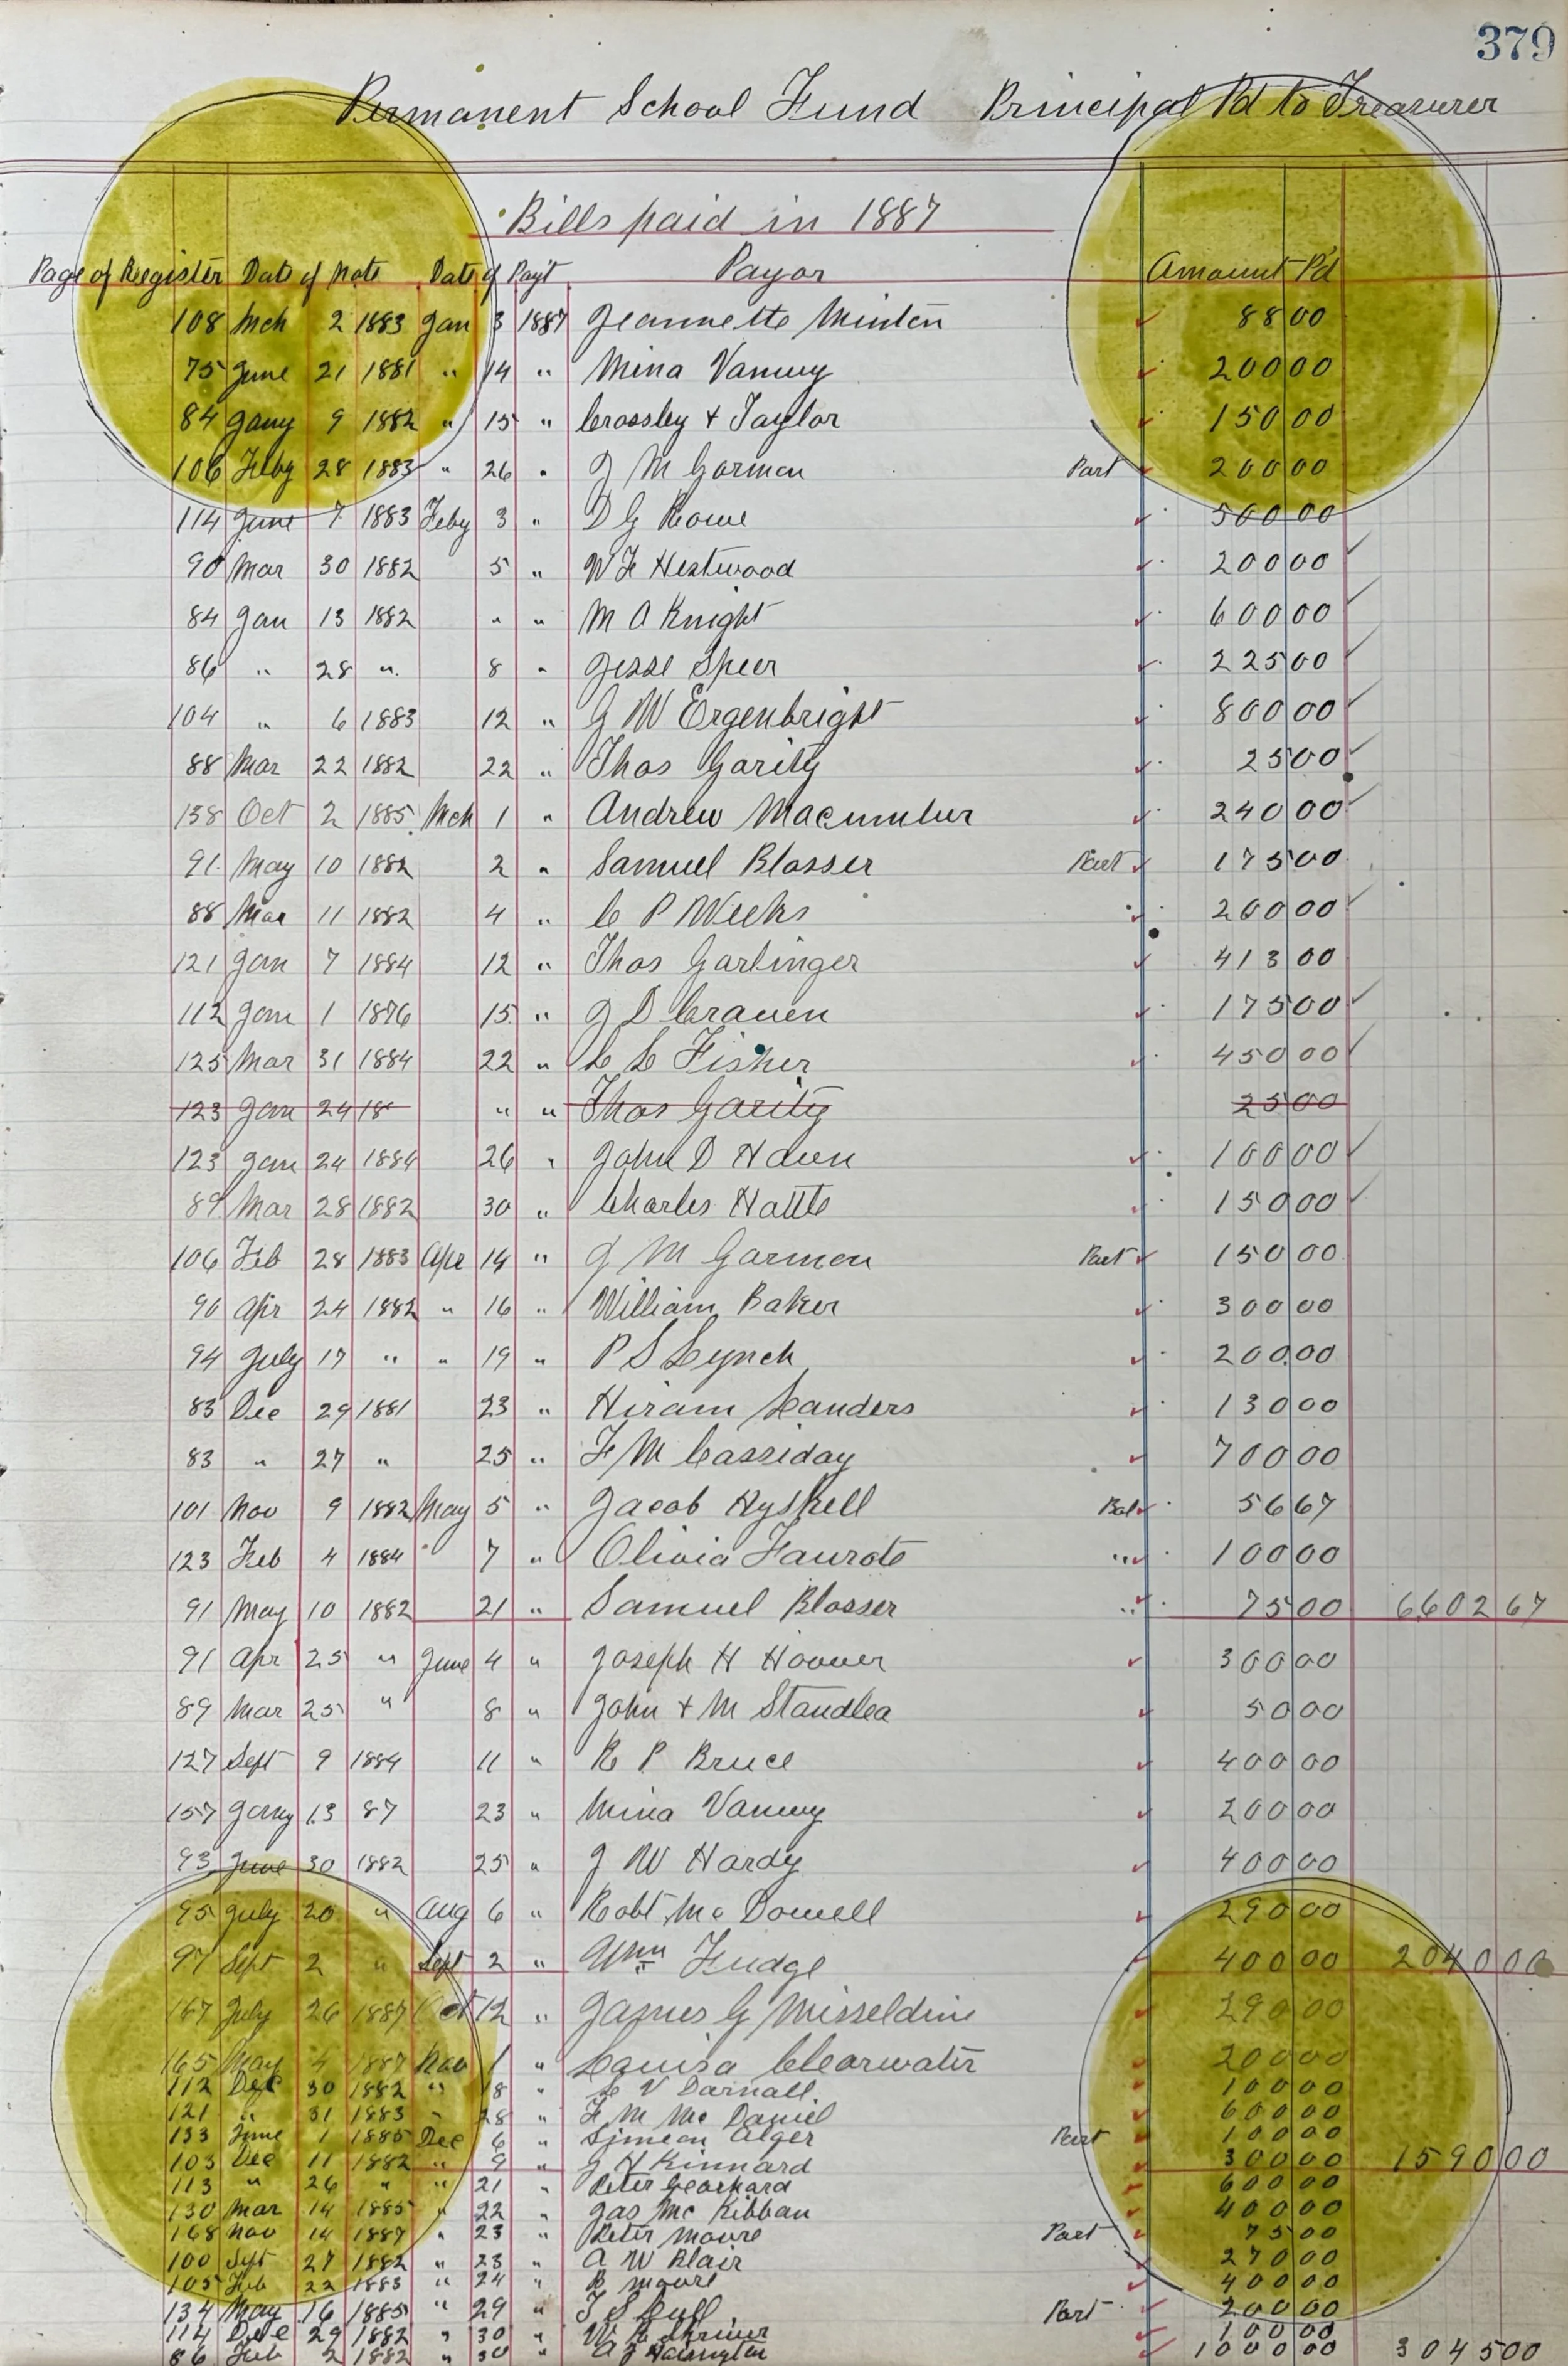 379
Permanent School Fund Principal Pd to Treasurer
Bills paid in 1887
Page of Register Date of Note Date of Pay't Payor Amount P'd
108 Mch 2 1883 Jan 3 1887 Jeannette Minton 88 00
75 June 21 1881 " 14 " Mina Vanwy 200 00
84 Jany 9 1882 " 15 " Crossley + Taylor 150 00
106 Feby 28 1883 " 26 " J M Garmon Part 200 00
114 June 7 1883 Feby 3 " D G Rowe 500 00
90 Mar 30 1882 5 " W F Hestwood 200 00
84 Jan 13 1882 " " M A Knight 600 00
86 " 28 " 8 " Jesse Speer 225 00
104 " 6 1883 12 " G W Ergenbright 800 00
88 Mar 22 1882 22 " Thos Garity 25 00
138 Oct 2 1885 Mch 1 " Andrew Macumber 240 00
91 May 10 1882 2 " Samuel Blosser Part 175 00
88 Mar 11 1882 4 " C P Weeks 200 00
121 Jan 7 1884 12 " Thos Garlinger 413 00
112 Jan 1 1876 15 " J D Craven 175 00
125 Mar 31 1884 22 " C C Fisher 450 00
123 Jan 24 18 " " Thos Garity 25 00
123 Jan 24 1884 26 " John D Haven 100 00
89 Mar 28 1882 30 " Charles Hattle 150 00
106 Feb 28 1883 Apr 14 " J M Garmon Part 150 00
90 Apr 24 1882 " 16 " William Baker 300 00
94 July 17 " " 19 " P S Lynch 200 00
83 Dec 29 1881 23 " Hiram Sanders 130 00
83 " 27 " 25 " F M Cassiday 700 00
101 Nov 9 1882 May 5 " Jacob Hyskell Bal 56 67
123 Feb 4 1884 " 7 " Olivia Faurote " 100 00
91 May 10 1882 21 " Samuel Blosser " 75 00 6602 67
91 Apr 25 " June 4 " Joseph H Hoover 300 00
89 Mar 25 " 8 " John + M Standlea 50 00
127 Sept 9 1884 11 " R P Bruce 400 00
157 Jany 13 87 23 " Mina Vanwy 200 00
93 June 30 1882 25 " J W Hardy 400 00
95 July 20 " Aug 6 " Robt McDowell 290 00
97 Sept 2 " Sept 2 " Wm Fudge 400 00 2040 00
167 July 26 1887 Oct 12 " James G Misseldine 290 00
165 May 4 1887 Nov 1 " Louisa Clearwater 200 00
112 Dec 30 1882 " 18 " C V Darnall 100 00
121 " 31 1883 " 28 " F M McDaniel 600 00
133 June 1 1885 Dec 6 " Simeon Alger Part 100 00
103 Dec 11 1882 " 9 " J H Kinnard 300 00 1590 00
113 " 26 " " 21 " Peter Gearhard 600 00
130 Mar 14 1885 " 22 " Jas McKibban 400 00
168 Nov 14 1887 " 23 " Peter Moore Part 75 00
100 Sept 27 1882 " 23 " A W Blair 270 00
105 Feb 22 1883 " 24 " B Moore 400 00
134 May 16 1885 " 29 " T S Cull Part 200 00
114 Dec 29 1882 " 30 " W C Shriver 100 00
86 Feb 2 1882 " 30 " A J 1000 00 3045 00